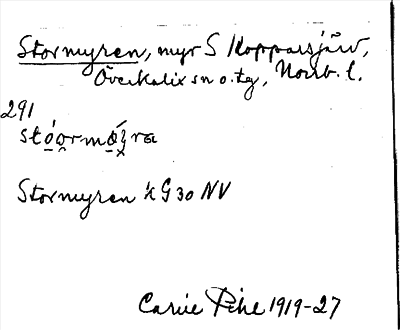 Stormyren, myr S Kopparsjärv,
Överkalix sn o. tg, Norrb. l.
291
Stormyren k G 30 NV
Carin Pihl 1919-27